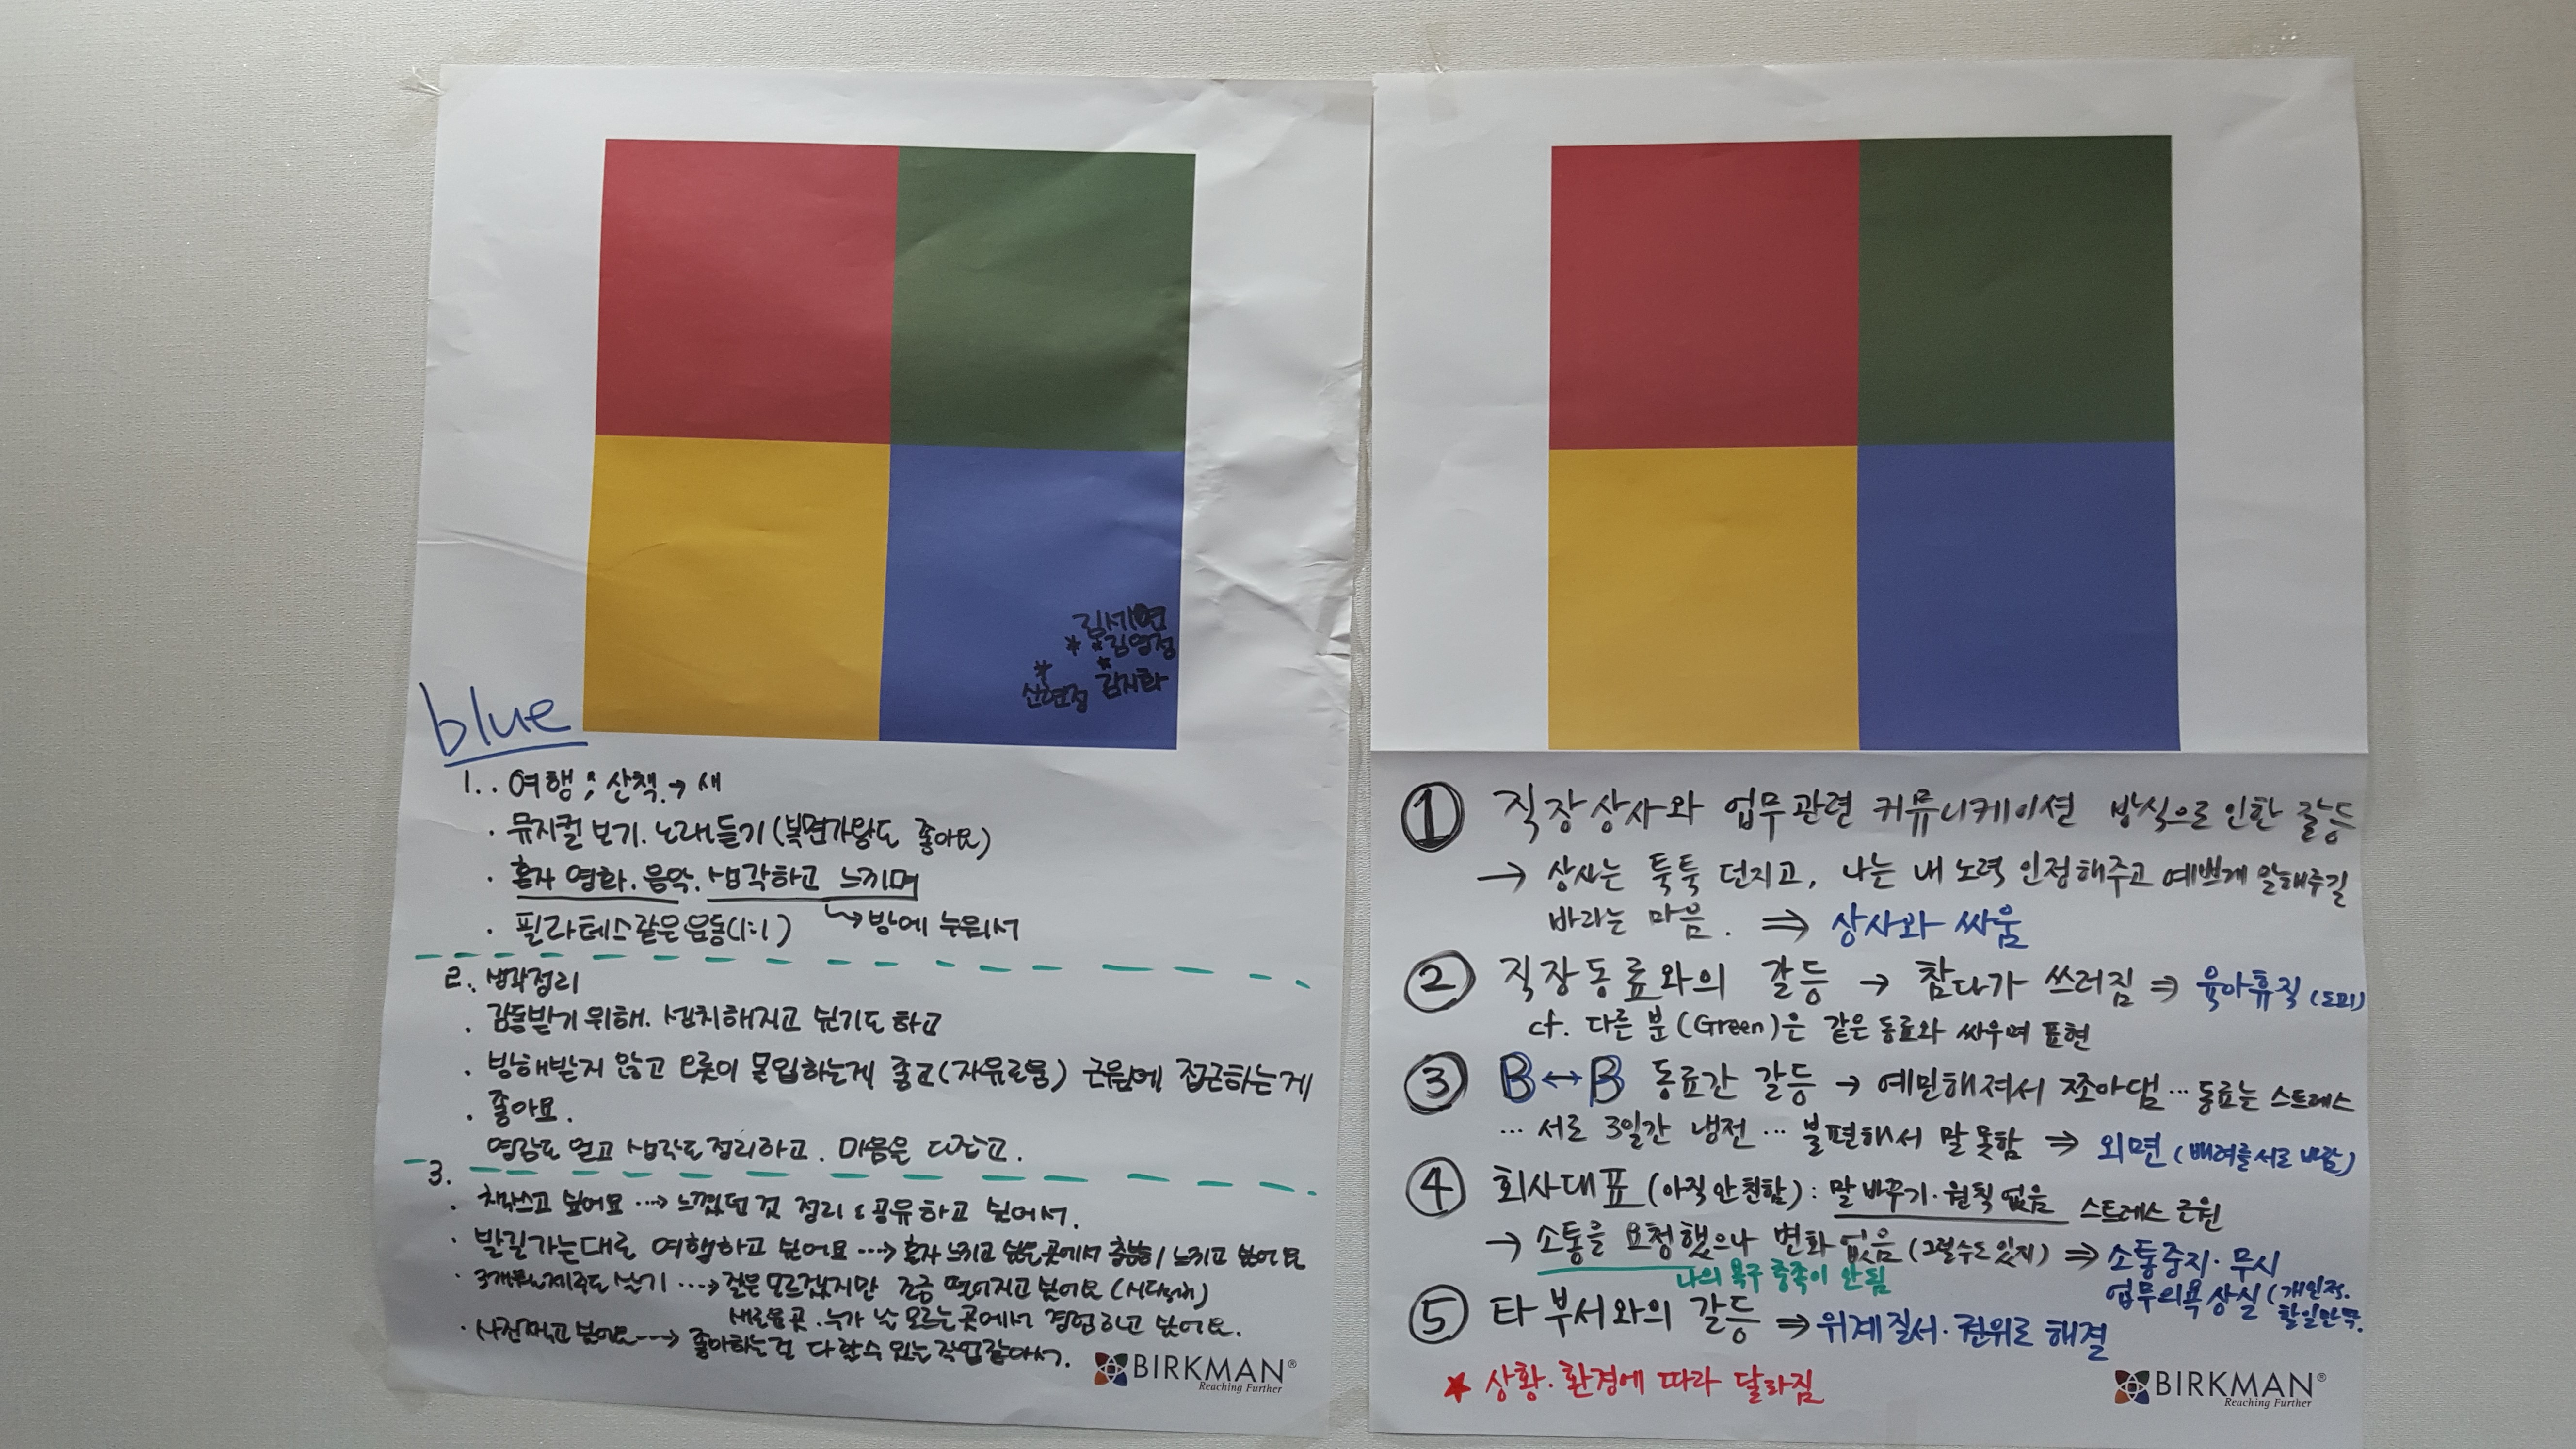 김세연
김영정
신현정 김지화
blue
1. · 여행 ; 산책 → 새
· 뮤지컬 보기. 노래듣기 (복면가왕도 좋아요)
· 혼자 영화. 음악. 생각하고 느끼며
↳ 방에 누워서
· 필라테스같은 운동(1:1)
2. 생각정리
· 감동받기 위해. 성취해지고 싶기도 하고
· 방해받지 않고 오롯이 몰입하는게 좋고(자유로움) 근원에 접근하는게
· 좋아요.
영감도 얻고 생각도 정리하고. 마음은 다잡고.
3.
· 책쓰고 싶어요 ···→ 느꼈던 것 정리 & 공유하고 싶어서.
· 발길가는대로 여행하고 싶어요 ···→ 혼자 느끼고 싶은곳에서 충분히 느끼고 싶어요
· 3개월 제주도 살기 ···→ 잘은 모르겠지만 조금 떨어지고 싶어요
새로운곳. 누가 날 모르는곳에서 경험하고 싶어요.
· 사진찍고 싶어요 ---→ 좋아하는걸 다 할수 있는 직업같아서.
BIRKMAN®
Reaching Further
① 직장상사와 업무관련 커뮤니케이션 방식으로 인한 갈등
→ 상사는 툭툭 던지고, 나는 내 노력 인정해주고 예쁘게 말해주길
바라는 마음. ⇒ 상사와 싸움
② 직장동료와의 갈등 → 참다가 쓰러짐 ⇒ 육아휴직 (도피)
cf. 다른 분(Green)은 같은 동료와 싸우며 표현
③ B↔B 동료간 갈등 → 예민해져서 쪼아댐 ··· 동료는 스트레스
··· 서로 3일간 냉전 ··· 불편해서 말 못함 ⇒ 외면 (배려를 서로 바람)
④ 회사대표 (아직 안 친함) : 말 바꾸기 · 원칙 없음 스트레스 근원
→ 소통을 요청했으나 변화 없음 (그럴수도 있지) ⇒ 소통중지 · 무시
나의 욕구 충족이 안됨
업무의욕 상실 (개인적. 할일만 뚝.
⑤ 타 부서와의 갈등 ⇒ 위계질서 · 권위로 해결
★ 상황 · 환경에 따라 달라짐
BIRKMAN®
Reaching Further